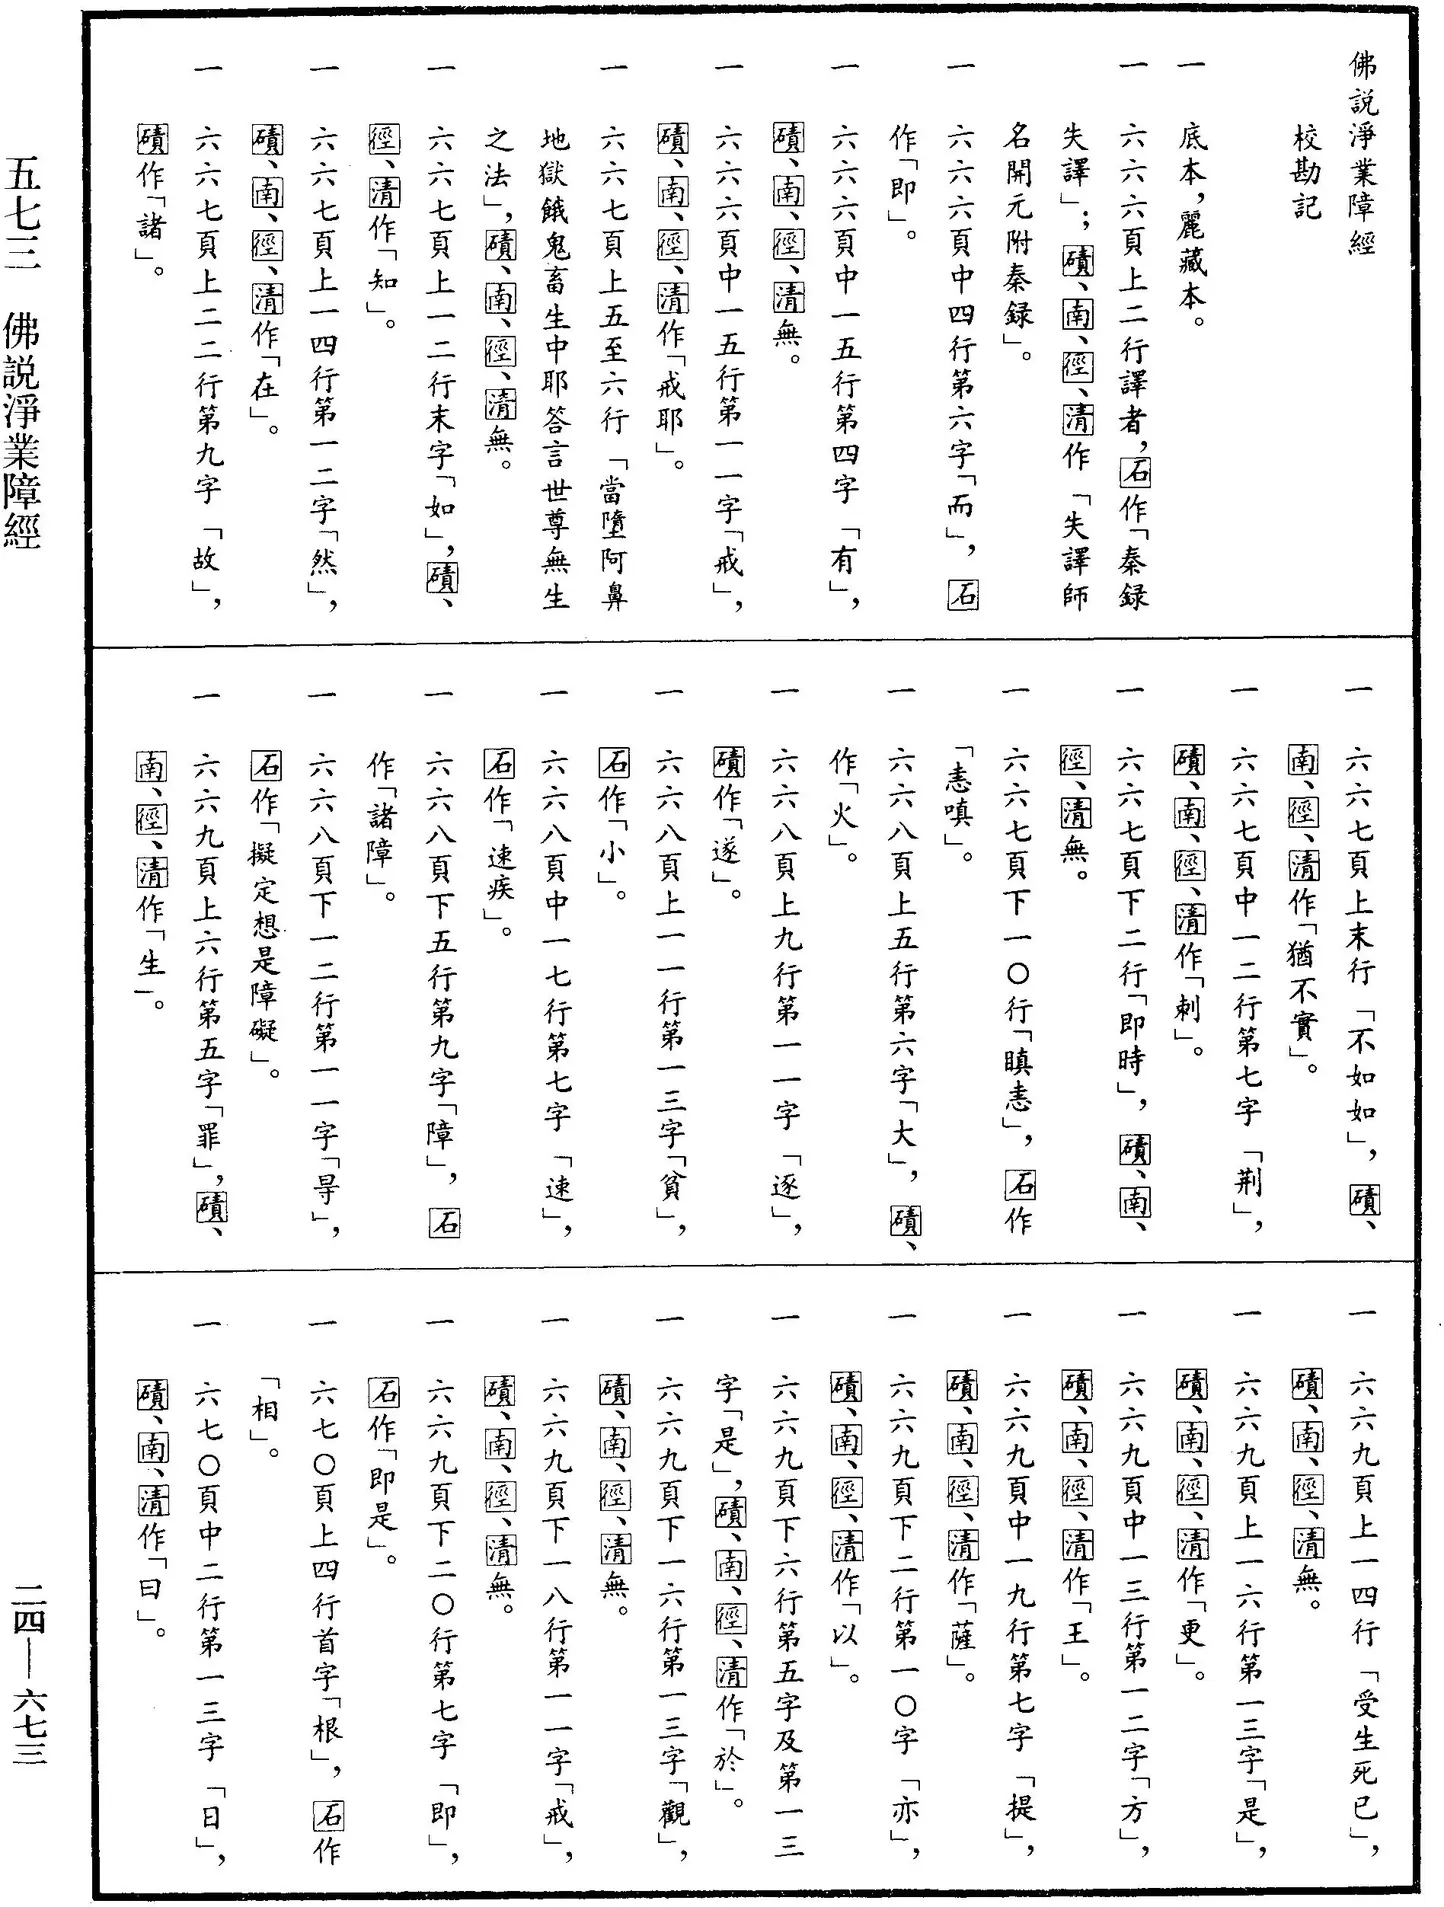 佛説淨業障經
校勘記
一　底本，麗藏本。
一　六六六頁上二行譯者，石作「秦録
失譯」；磧、南、徑、清作「失譯師
名開元附秦録」。
一　六六六頁中四行第六字「而」，石
作「即」。
一　六六六頁中一五行第四字「有」，
磧、南、徑、清無。
一　六六六頁中一五行第一一字「戒」，
磧、南、徑、清作「戒耶」。
一　六六七頁上五至六行「當墮阿鼻
地獄餓鬼畜生中耶答言世尊無生
之法」，磧、南、徑、清無。
一　六六七頁上一二行末字「如」，磧、
徑、清作「知」。
一　六六七頁上一四行第一二字「然」，
磧、南、徑、清作「在」。
一　六六七頁上二二行第九字「故」，
磧作「諸」。
一　六六七頁上末行「不如如」，磧、
南、徑、清作「猶不實」。
一　六六七頁中一二行第七字「荆」，
磧、南、徑、清作「刺」。
一　六六七頁下二行「即時」，磧、南、
徑、清無。
一　六六七頁下一〇行「瞋恚」，石作
「恚嗔」。
一　六六八頁上五行第六字「大」，磧、
作「火」。
一　六六八頁上九行第一一字「逐」，
磧作「遂」。
一　六六八頁上一一行第一三字「貧」，
石作「小」。
一　六六八頁中一七行第七字「速」，
石作「速疾」。
一　六六八頁下五行第九字「障」，石
作「諸障」。
一　六六八頁下一二行第一一字「㝵」，
石作「擬定想是障礙」。
一　六六九頁上六行第五字「罪」，磧、
南、徑、清作「生」。
一　六六九頁上一四行「受生死已」，
磧、南、徑、清無。
一　六六九頁上一六行第一三字「是」，
磧、南、徑、清作「更」。
一　六六九頁中一三行第一二字「方」，
磧、南、徑、清作「王」。
一　六六九頁中一九行第七字「提」，
磧、南、徑、清作「薩」。
一　六六九頁下二行第一〇字「亦」，
磧、南、徑、清作「以」。
一　六六九頁下六行第五字及第一三
字「是」，磧、南、徑、清作「於」。
一　六六九頁下一六行第一三字「觀」，
磧、南、徑、清無。
一　六六九頁下一八行第一一字「戒」，
磧、南、徑、清無。
一　六六九頁下二〇行第七字「即」，
石作「即是」。
一　六七〇頁上四行首字「根」，石作
「相」。
一　六七〇頁中二行第一三字「日」，
磧、南、清作「曰」。
五七三　佛説淨業障經
二四—六七三